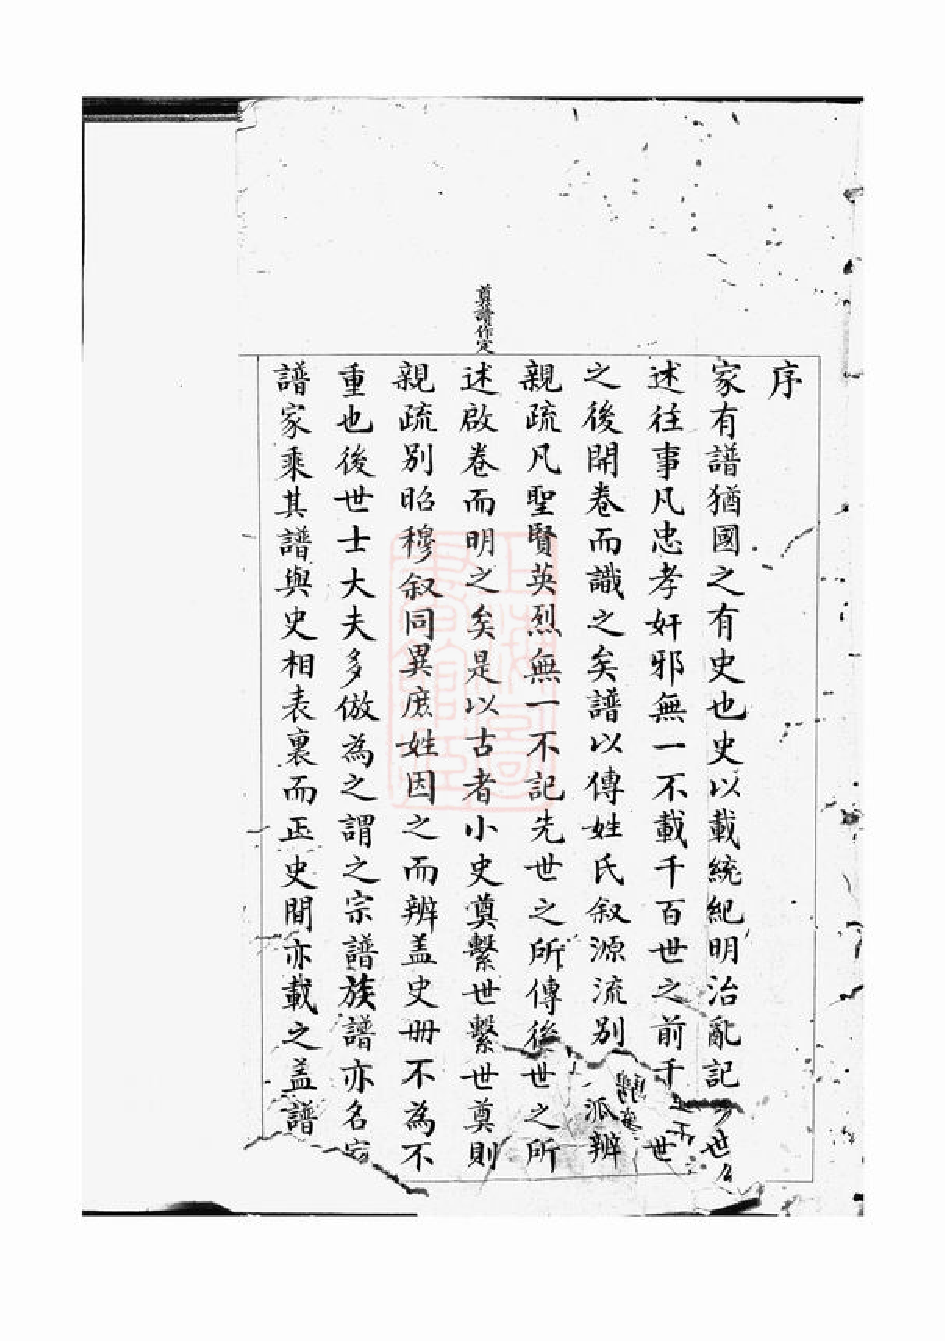 序
家有譜猶國之有史也史以載統紀明治亂記世
述往事凡忠孝奸邪無一不載千百世之前千世
之後開卷而識之矣譜以傳姓氏叙源流别派辨
親疏凡聖賢英烈無一不記先世之所傳後世之所
奠讀作定
述啟卷而明之矣是以古者小史奠繫世繫世奠則
親疏别昭穆叙同異庶姓因之而辨盖史册不為不
重也後世士大夫多倣為之謂之宗譜族譜亦名家
譜家乘其譜與史相表裏而正史間亦載之盖譜